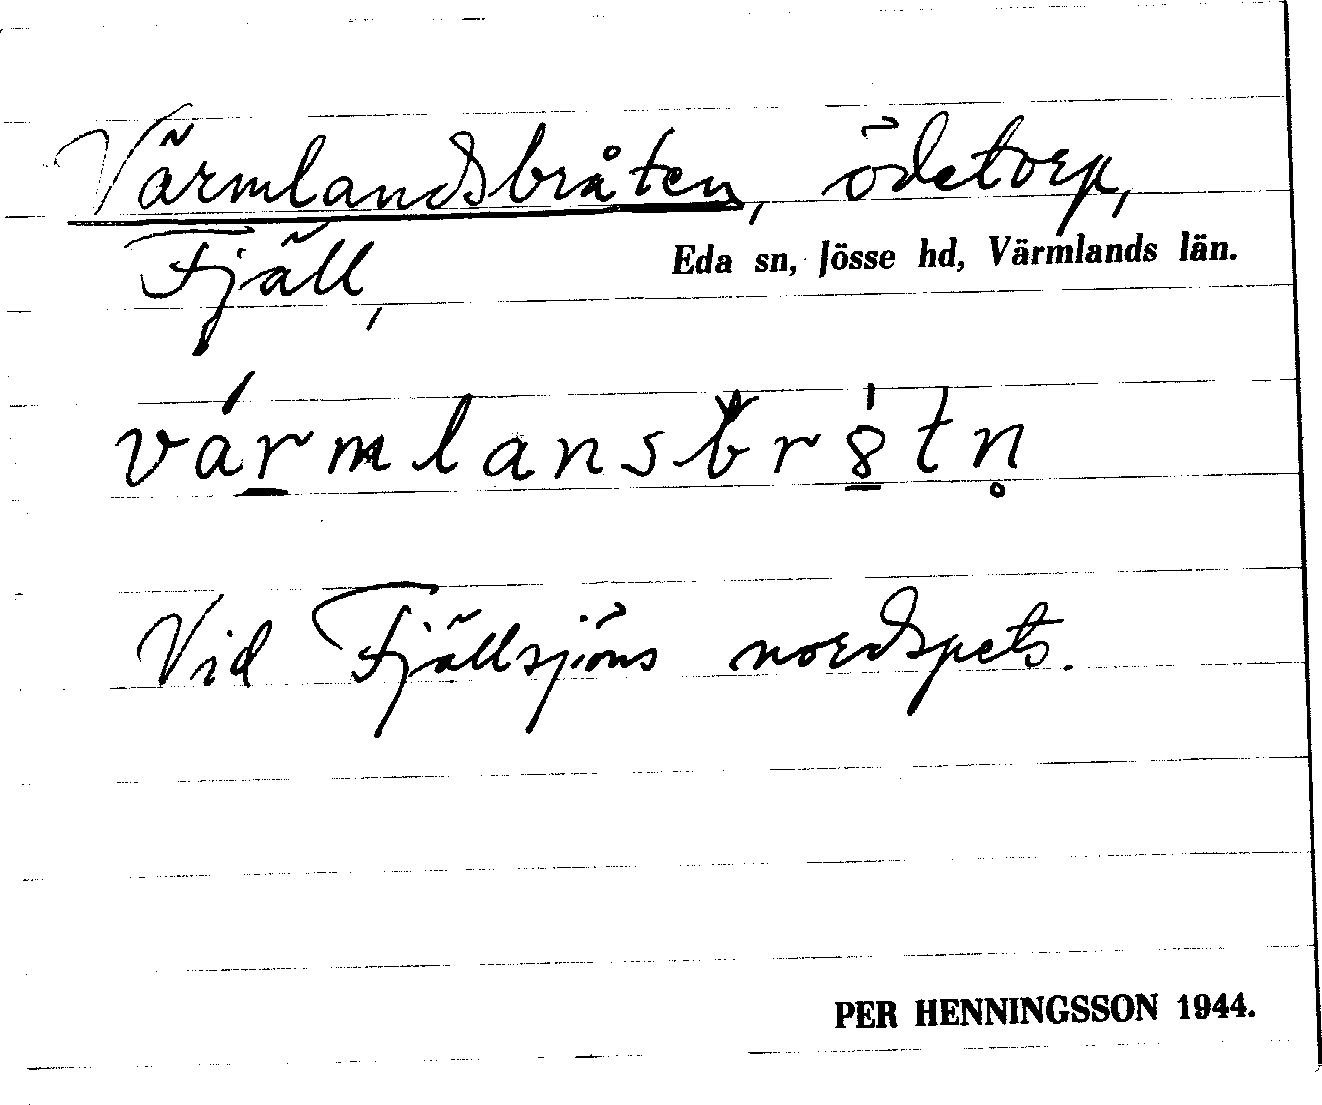 Värmlandsbråten, ödetorp,
Fjäll,
Eda sn, Jösse hd, Värmlands län.
Vid Fjällsjöns nordspets.
PER HENNINGSSON 1944.